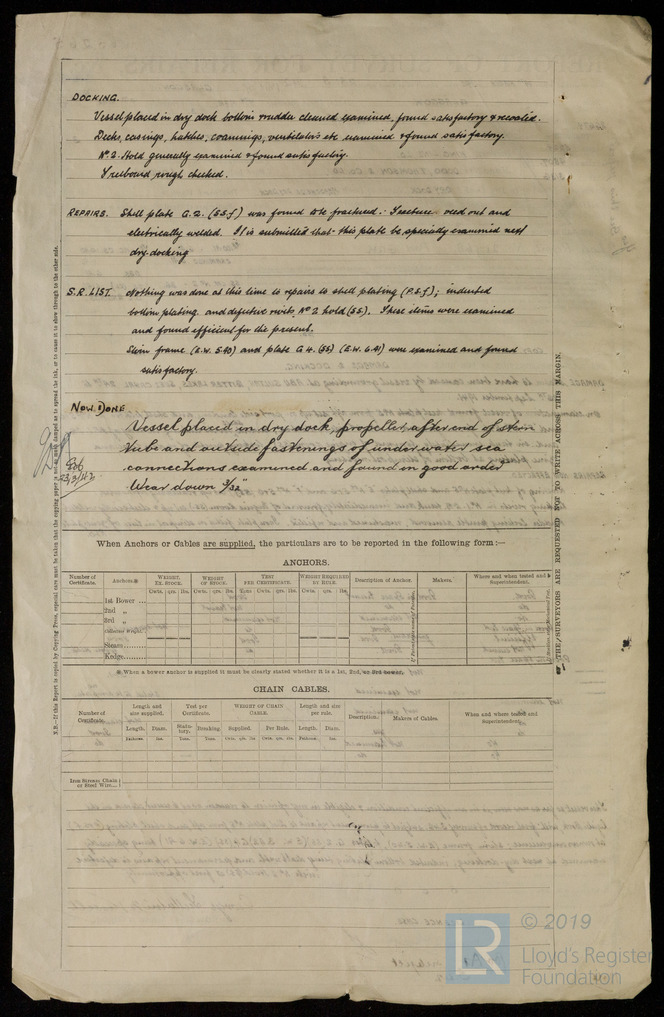 DOCKING.
Vessel placed in dry dock bottom & rudder cleaned examined, found satisfactory & recoated.
Decks, casings, hatches, coamings, ventilators etc examined & found satisfactory.
No. 2 Hold generally examined & found satisfactory.
Freeboard rough checked.
REPAIRS. Shell plate G.2. (S.S.f) was found to be fractured. Fracture veed out and
electrically welded. It is submitted that this plate be specially examined next
dry-docking
S.R. LIST. Nothing was done at this time to repairs to shell plating (P.S.f); indented
bottom plating and defective rivets No 2 hold (SS). These items were examined
and found efficient for the present.
Stern frame (E.W. 5.40) and plate G 4. (SS) (E.W. 6.41) were examined and found
satisfactory.
NOW DONE
Vessel placed in dry dock, propeller, after end of stern
tube and outside fastenings of under water sea
connections examined and found in good order
Wear down 3/32"
23/3/42
When Anchors or Cables are supplied, the particulars are to be reported in the following form:—
ANCHORS.
Number of Certificate. Anchors.* WEIGHT. EX. STOCK. WEIGHT OF STOCK. TEST PER CERTIFICATE. WEIGHT REQUIRED BY RULE. Description of Anchor. Makers. Where and when tested and Superintendent.
Cwts. qrs. lbs. Cwts. qrs. lbs. Tons Cwts. qrs. lbs. Cwts. qrs. lbs.
1st Bower ...
2nd „
3rd „
Collective Weight
Stream
Kedge
* When a bower anchor is supplied it must be clearly stated whether it is a 1st, 2nd, or 3rd bower.
CHAIN CABLES.
Number of Certificate. Length and size supplied. Test per Certificate. WEIGHT OF CHAIN CABLE. Length and size per rule. Description. Makers of Cables. When and where tested and Superintendent.
Length. Diam. Statutory. Breaking. Supplied. Per Rule. Length. Diam.
Fathoms. Ins. Tons. Tons. Cwts. qrs. lbs. Cwts. qrs. lbs. Fathoms. Ins.
Iron Stream Chain
or Steel Wire...
THE SURVEYORS ARE REQUESTED NOT TO WRITE ACROSS THIS MARGIN.
LR
© 2019
Lloyd's Register
Foundation